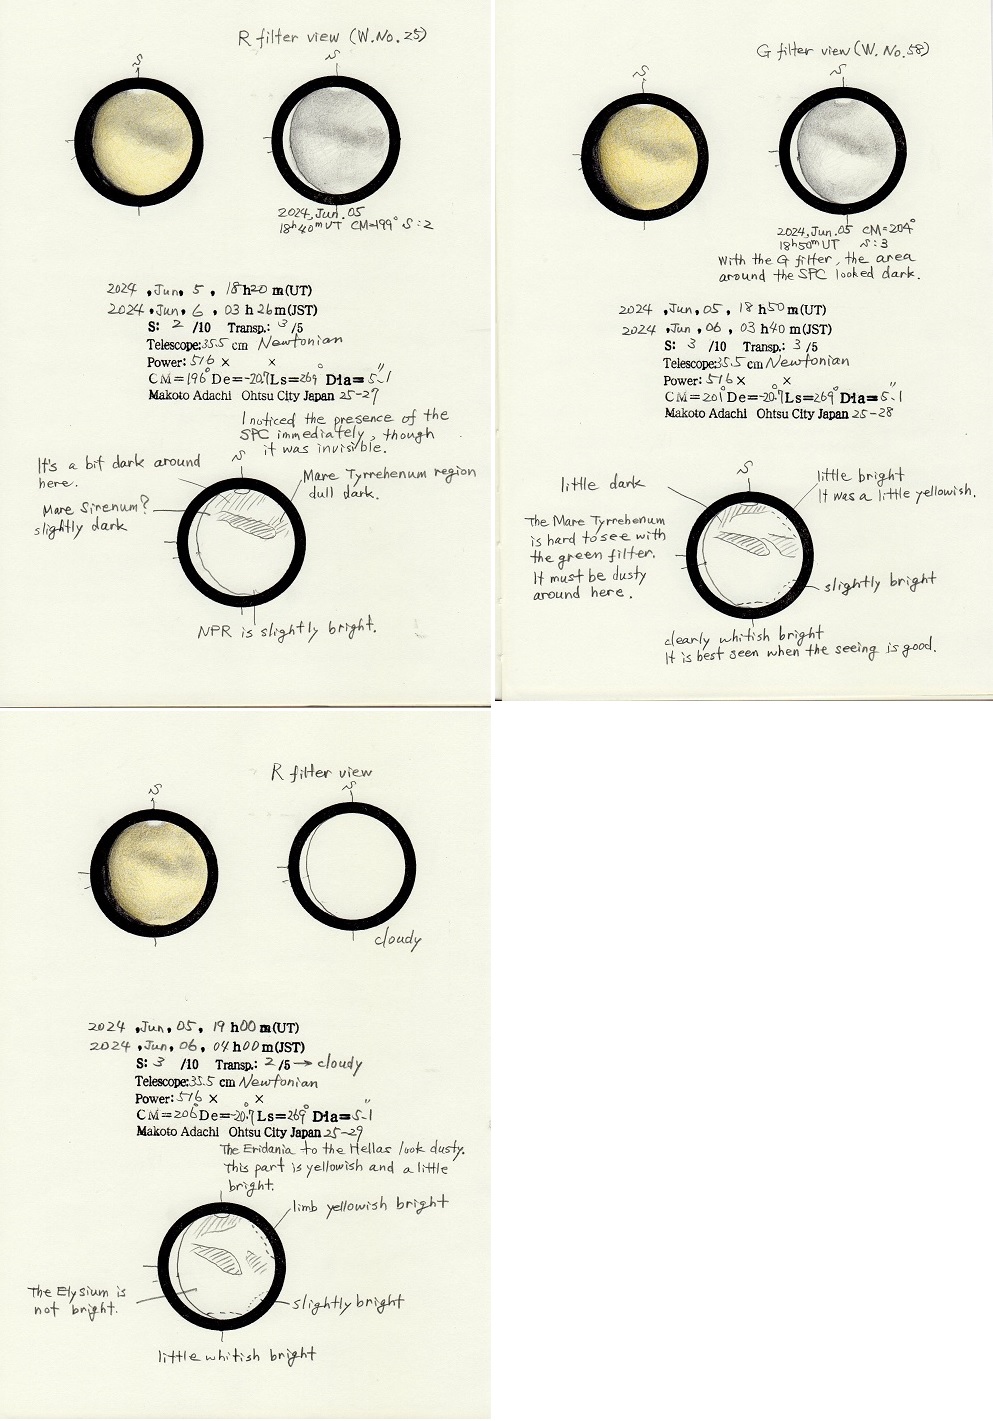 R filter view (W.No.25)
S
S
2024, Jun. 05
18h40mUT CM=199° S:2
2024, Jun, 5, 18h20m(UT)
2024, Jun, 6, 03h26m(JST)
S: 2 /10 Transp.: 3 /5
Telescope:35.5 cm Newtonian
Power: 516 × ×
CM=196° De=-20.7° Ls=269° Dia=5.″1
Makoto Adachi Ohtsu City Japan 25-27
I noticed the presence of the
SPC immediately, though
it was invisible.
S
It's a bit dark around
here.
Mare Tyrrehenum region
dull dark.
Mare Sirenum?
slightly dark
NPR is slightly bright.
G filter view (W. No. 58)
S
S
2024, Jun. 05 CM=204°
18h50mUT S:3
With the G filter, the area
around the SPC looked dark.
2024, Jun, 05, 18h50m(UT)
2024, Jun, 06, 03h40m(JST)
S: 3 /10 Transp.: 3 /5
Telescope:35.5 cm Newtonian
Power: 516 × ×
CM=201° De=-20.7° Ls=269° Dia=5.″1
Makoto Adachi Ohtsu City Japan 25-28
S
little dark
little bright
It was a little yellowish.
The Mare Tyrrehenum
is hard to see with
the green filter.
It must be dusty
around here.
slightly bright
clearly whitish bright
It is best seen when the seeing is good.
R filter view
S
S
cloudy
2024, Jun, 05, 19h00m(UT)
2024, Jun, 06, 04h00m(JST)
S: 3 /10 Transp.: 2 /5 → cloudy
Telescope:35.5 cm Newtonian
Power: 516 × ×
CM=206° De=-20.7° Ls=269° Dia=5.″1
Makoto Adachi Ohtsu City Japan 25-29
The Eridania to the Hellas look dusty.
This part is yellowish and a little
bright.
limb yellowish bright
The Elysium is
not bright.
slightly bright
little whitish bright